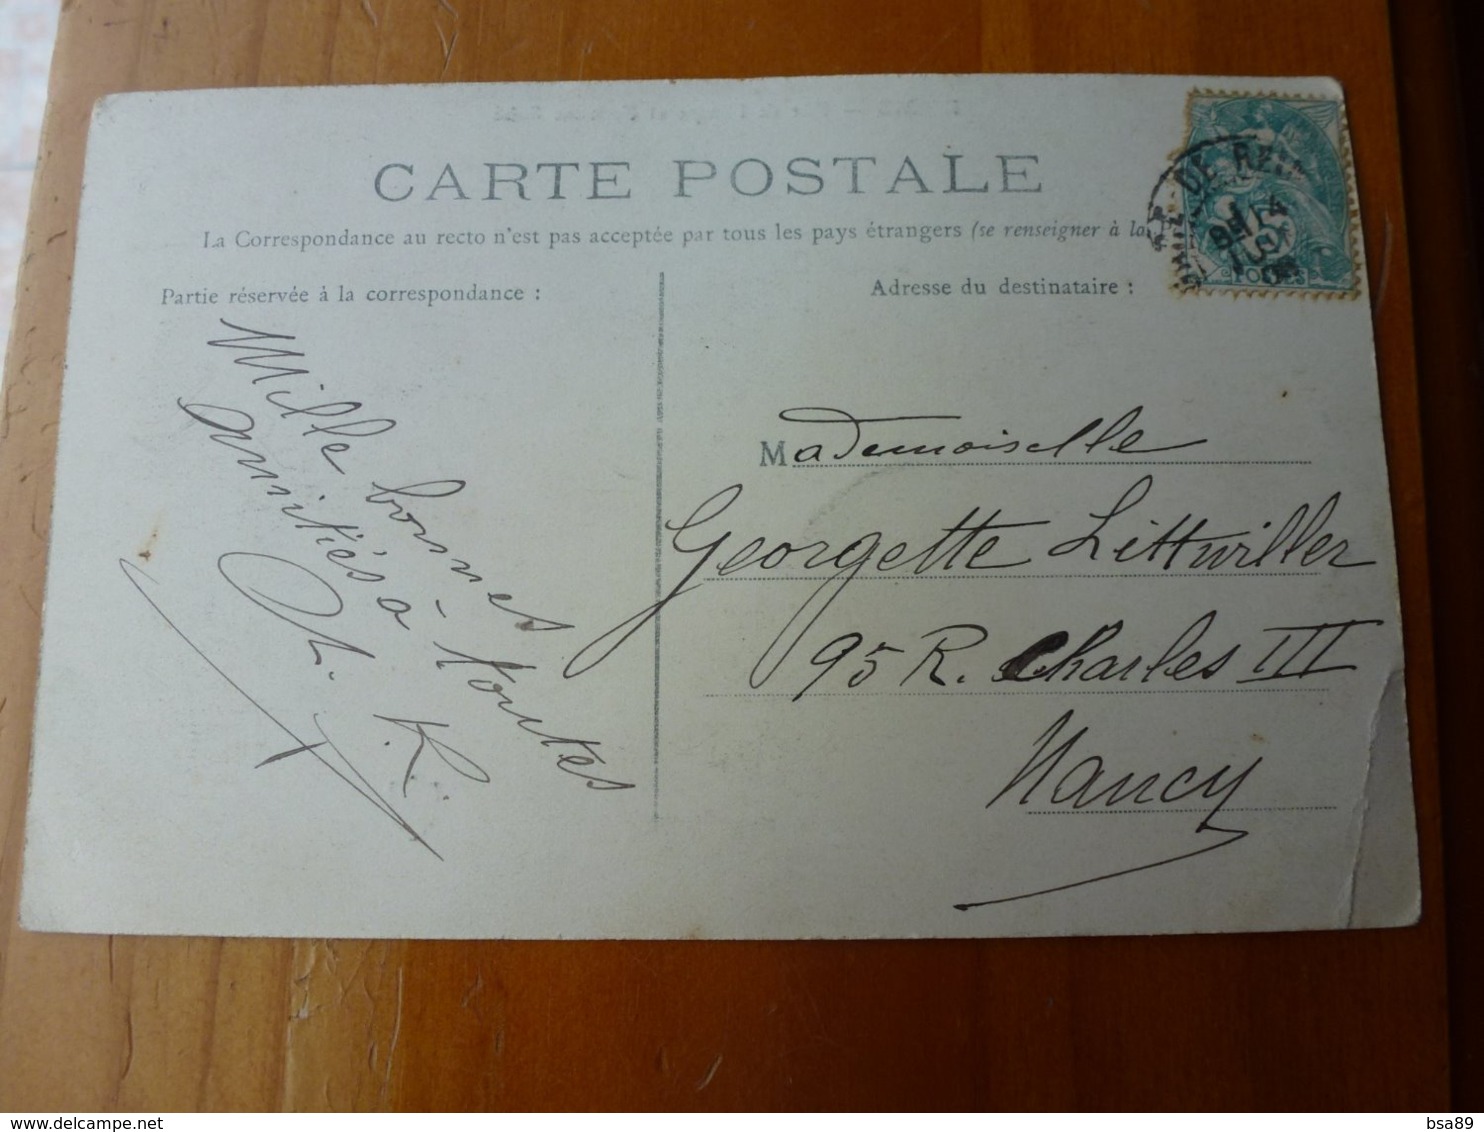 CARTE POSTALE
La Correspondance au recto n'est pas acceptée par tous les pays étrangers (se renseigner à la
Partie réservée à la correspondance :
Adresse du destinataire :
Mille bonnes
amitiés à toutes
L. K.
Mademoiselle
Georgette Littwiller
95 R. Charles III
Nancy
DE
14
5
08
bsa89